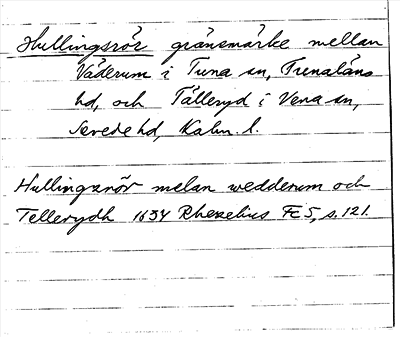 Hullingsrör gränsmärke mellan
Väderum i Tuna sn, Tunaläns
hd, och Tålleryd i Vena sn,
Sevede hd, Kalm. l.
Hullingzrör melan wedderum och
Tellerydh 1634 Rhezelius Fc 5, s. 121.